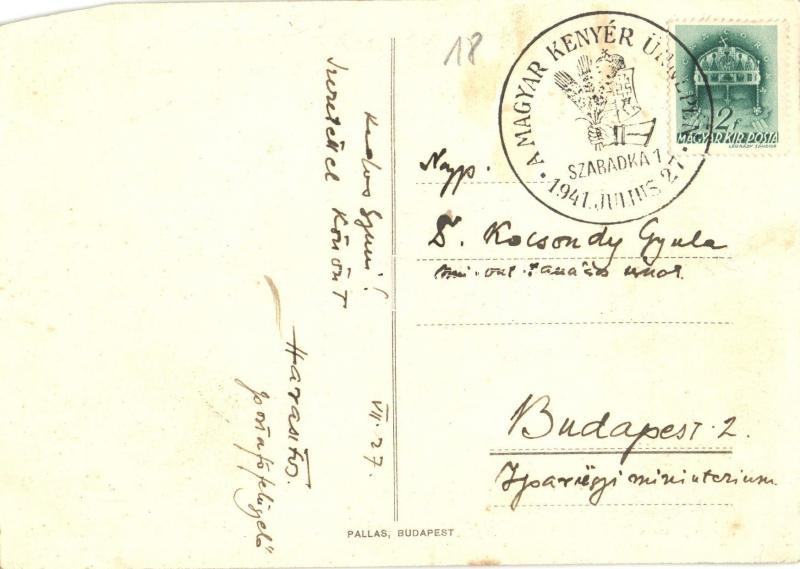 18
A MAGYAR KENYÉR ÜNNEPE
SZABADKA 1
1941. JULIUS 27.
2f
MAGYAR KIR. POSTA
LÉGRÁDY SÁNDOR
Kedves Gyuri!
Szeretettel köszönt
Haraszthy
VII. 27.
Nagys.
D. Kocsondy Gyula
min. oszt. tanácsos urnak.
Budapest 2.
Iparügyi miniszterium
PALLAS, BUDAPEST